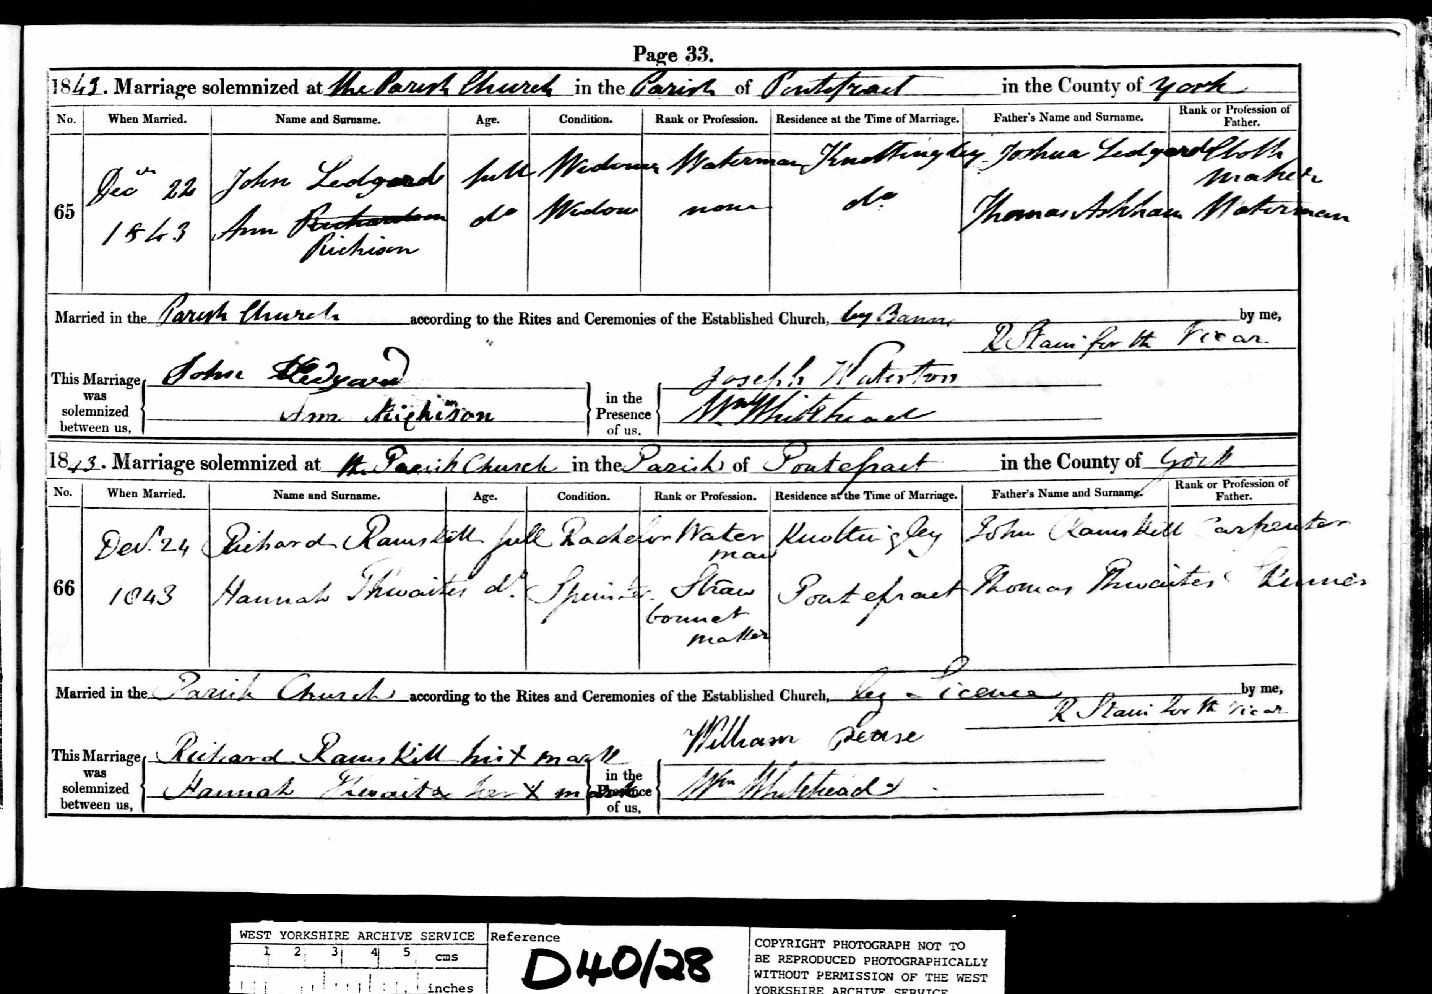 Page 33.
1843. Marriage solemnized at the Parish Church in the Parish of Pontefract in the County of York
No. When Married. Name and Surname. Age. Condition. Rank or Profession. Residence at the Time of Marriage. Father's Name and Surname. Rank or Profession of Father.
65 Decr 22 1843 John Ledgard full Widower Waterman Knottingley Joshua Ledgard Cloth Maker
Ann Richardson Richison do Widow none do Thomas Askham Waterman
Married in the Parish Church according to the Rites and Ceremonies of the Established Church, by Banns by me,
R Stain for the Vicar
This Marriage was solemnized between us, John Ledgard Ann Richison in the Presence of us. Joseph Waterton Wm Whitehead
1843. Marriage solemnized at the Parish Church in the Parish of Pontefract in the County of York
No. When Married. Name and Surname. Age. Condition. Rank or Profession. Residence at the Time of Marriage. Father's Name and Surname. Rank or Profession of Father.
66 Decr. 24 1843 Richard Ramskill full Bachelor Waterman Knottingley John Ramskill Carpenter
Hannah Thwaites do. Spinster Straw bonnet maker Pontefract Thomas Thwaites
Married in the Parish Church according to the Rites and Ceremonies of the Established Church, by Licence by me,
R Stain for the Vicar
This Marriage was solemnized between us, Richard Ramskill his X mark Hannah Thwaites her X mark in the Presence of us, William Pease Wm Whitehead
WEST YORKSHIRE ARCHIVE SERVICE
1 2 3 4 5 cms
inches
Reference
D40/28
COPYRIGHT PHOTOGRAPH NOT TO
BE REPRODUCED PHOTOGRAPHICALLY
WITHOUT PERMISSION OF THE WEST
YORKSHIRE ARCHIVE SERVICE